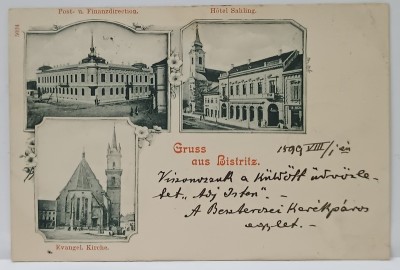 Post- u. Finanzdirection.
Hôtel Sahling.
Gruss
aus Bistritz.
1899 VIII/1 én
Viszonozzuk a küldött üdvözle-
tet „Adj Isten". -
A Beszterczei Kerékpáros
egylet. -
Evangel. Kirche.